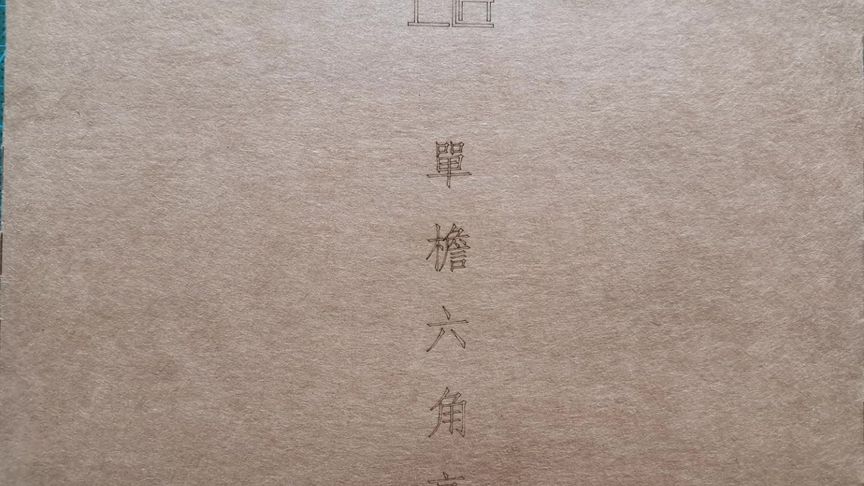 單檐六角